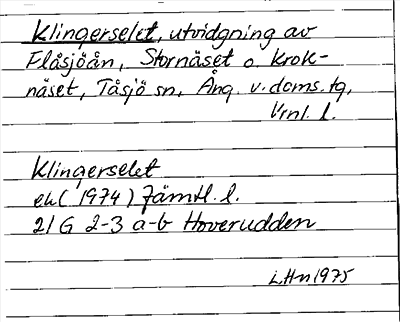 Klingerselet, utvidgning av
Flåsjöån, Stornäset o. Krok-
näset, Tåsjö sn, Ång. v. doms. tg,
Vrnl. l.
Klingerselet
ek (1974) Jämtl. l.
21 G 2-3 a-b Hoverudden
LHn 1975